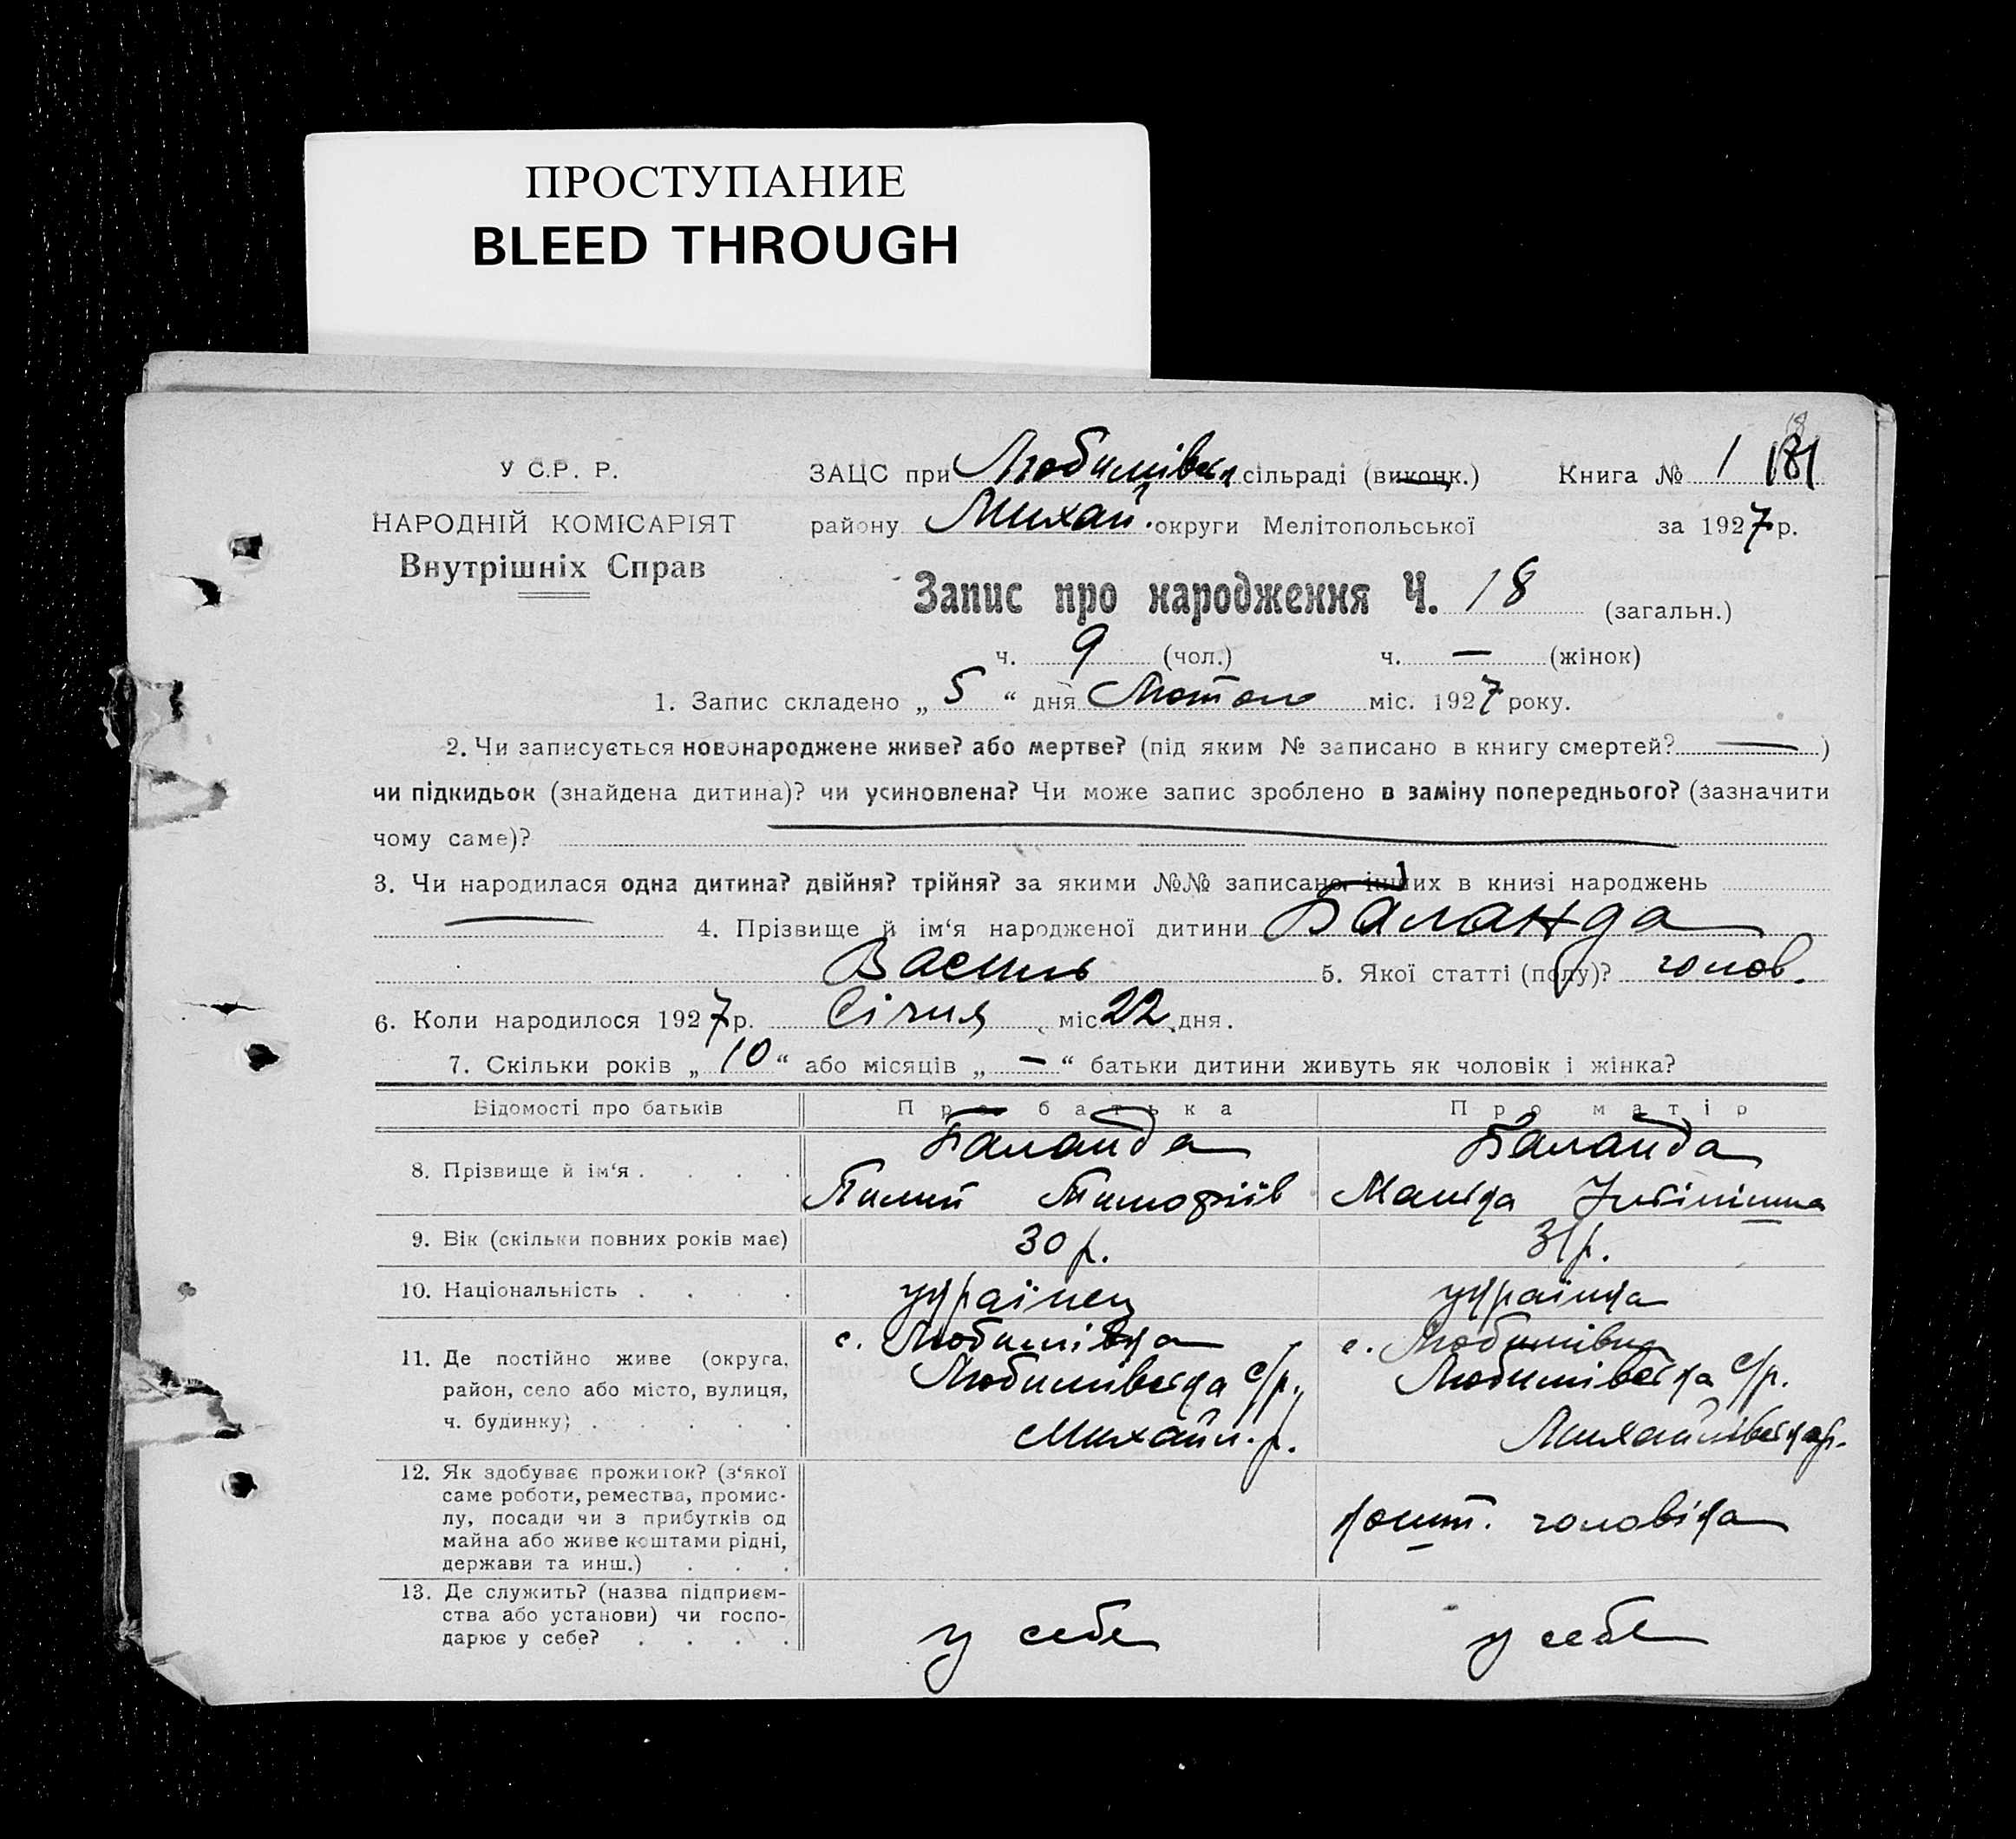 ПРОСТУПАНИЕ
BLEED THROUGH
У С.Р. Р.
НАРОДНІЙ КОМІСАРІЯТ
Внутрішніх Справ
18
ЗАЦС при Любимівськ сільраді (виконк.) Книга № 1 181
району Михай. округи Мелітопольської за 1927 р.
Запис про народження Ч. 18 (загальн.)
ч. 9 (чол.) ч. — (жінок)
1. Запис складено „ 5 “ дня Лютого міс. 1927 року.
2. Чи записується новонароджене живе? або мертве? (під яким № записано в книгу смертей? — )
чи підкидьок (знайдена дитина)? чи усиновлена? Чи може запис зроблено в заміну попереднього? (зазначити
чому саме)?
3. Чи народилася одна дитина? двійня? трійня? за якими №№ записано інших в книзі народжень
— 4. Прізвище й ім‘я народженої дитини Баланда
Василь 5. Якої статті (полу)? чолов.
6. Коли народилося 1927 р. Січня міс. 22 дня.
7. Скільки років „ 10 “ або місяців „ — “ батьки дитини живуть як чоловік і жінка?
Відомості про батьків Про батька Про матір
8. Прізвище й ім‘я . . . . Баланда Баланда
Пилип Тимофіїв
9. Вік (скільки повних років має) 30 р. 31 р.
10. Національність . . . . українец українка
11. Де постійно живе (округа, район, село або місто, вулиця, ч. будинку) . . . . .
с. Любимівка
Любимівська с/р.,
Михайл. р.
с. Любимівка
Любимівська с/р.
Михайлівська р.
12. Як здобуває прожиток? (з‘якої
саме роботи, ремества, промис-
лу, посади чи з прибутків од
майна або живе коштами рідні,
держави та инш.) . . .
кошт. чоловіка
13. Де служить? (назва підприєм-
ства або установи) чи госпо-
дарює у себе? . . . .
у себе у себе